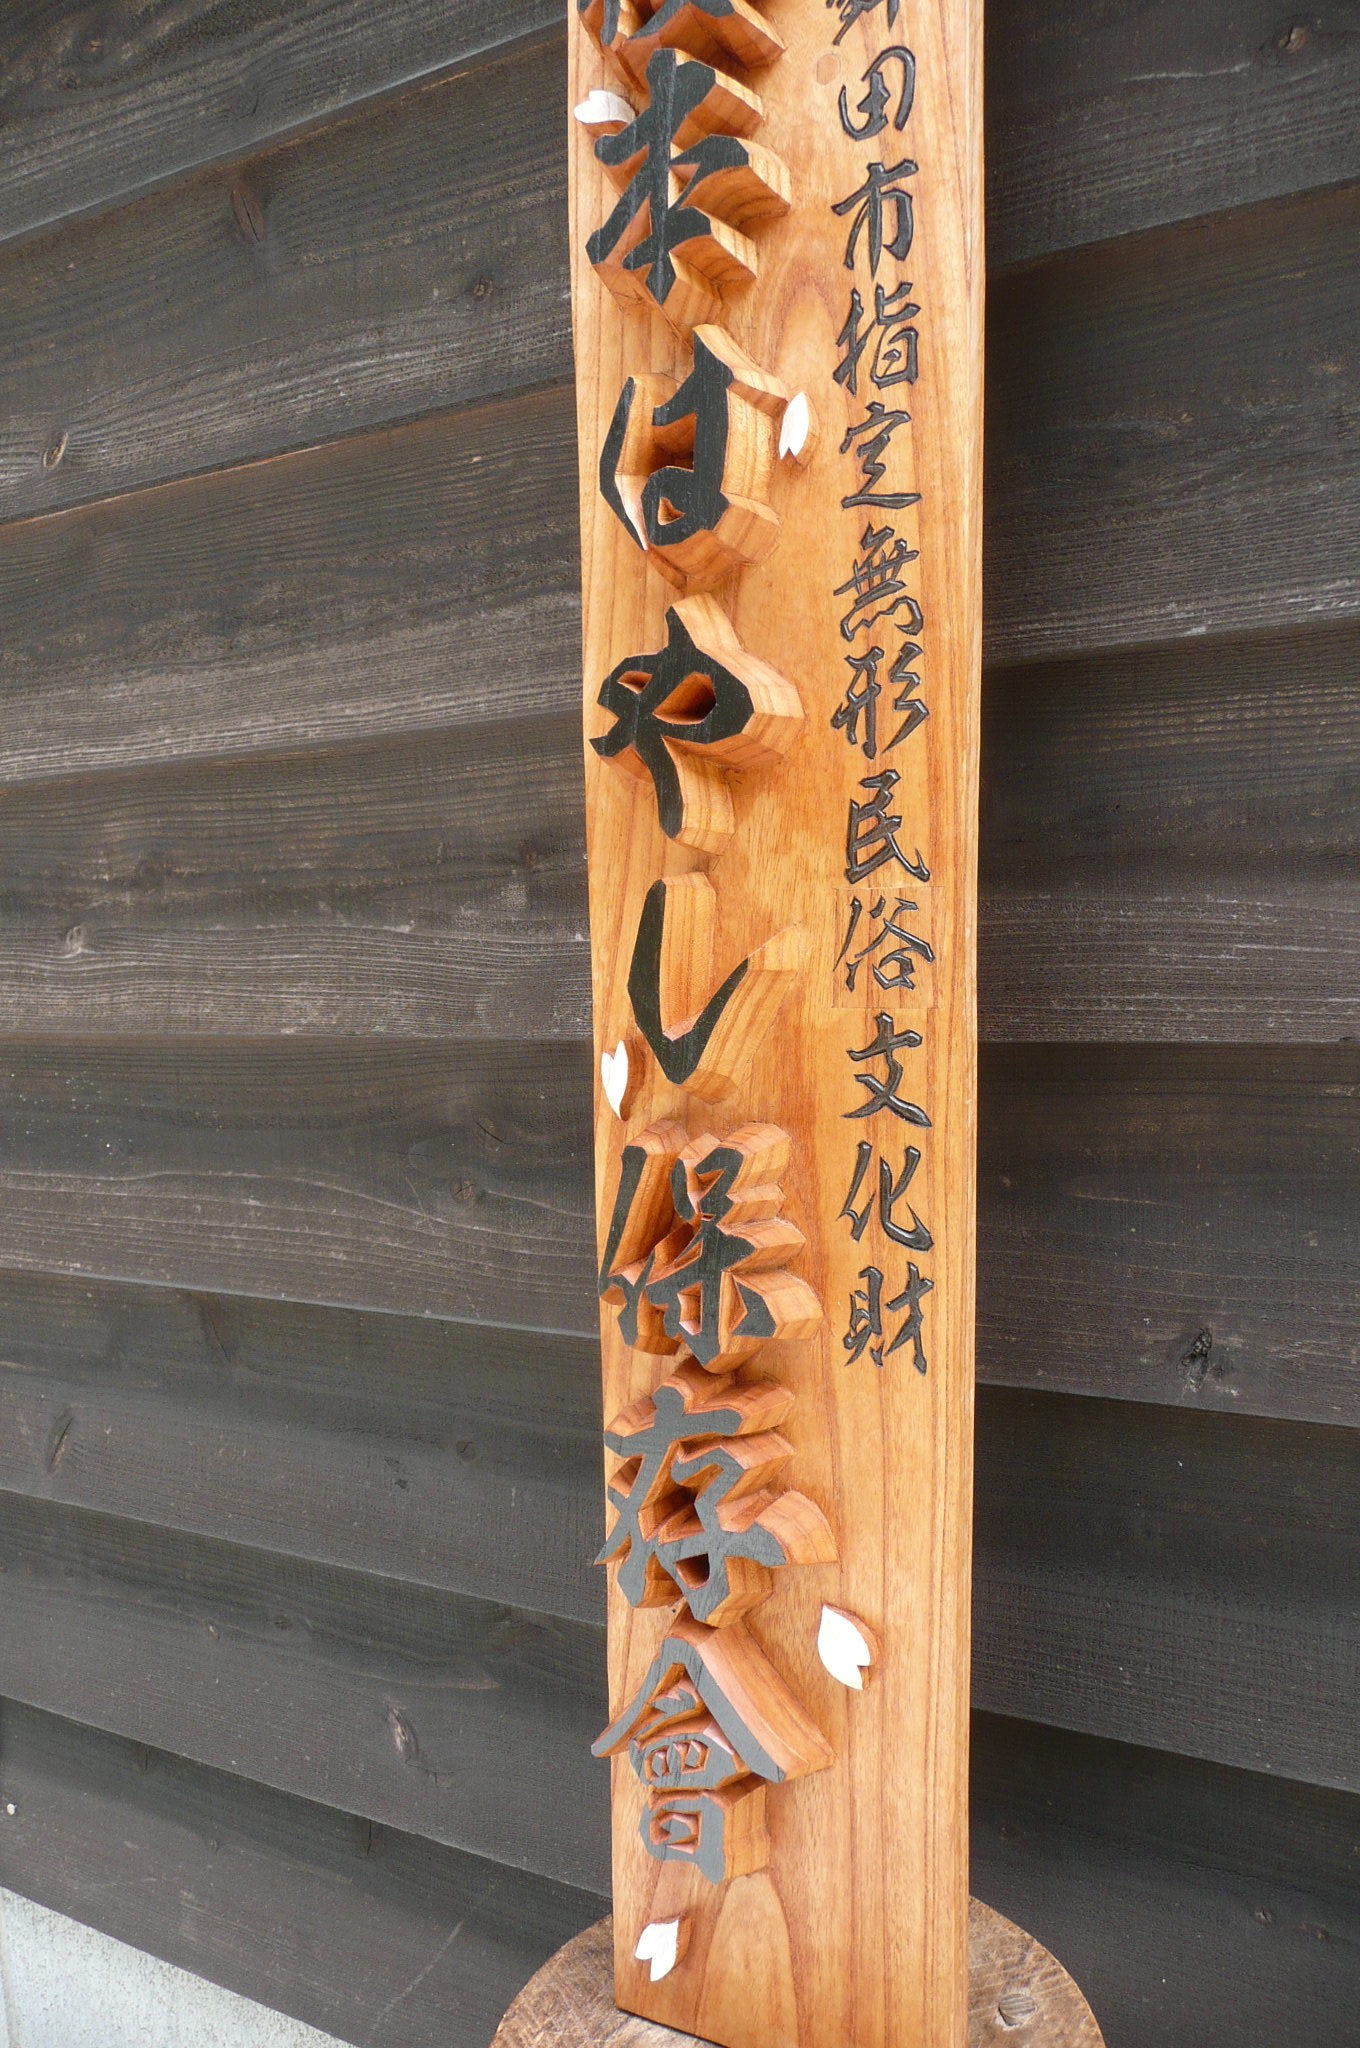 田市指定無形民俗文化財
本はやし保存會